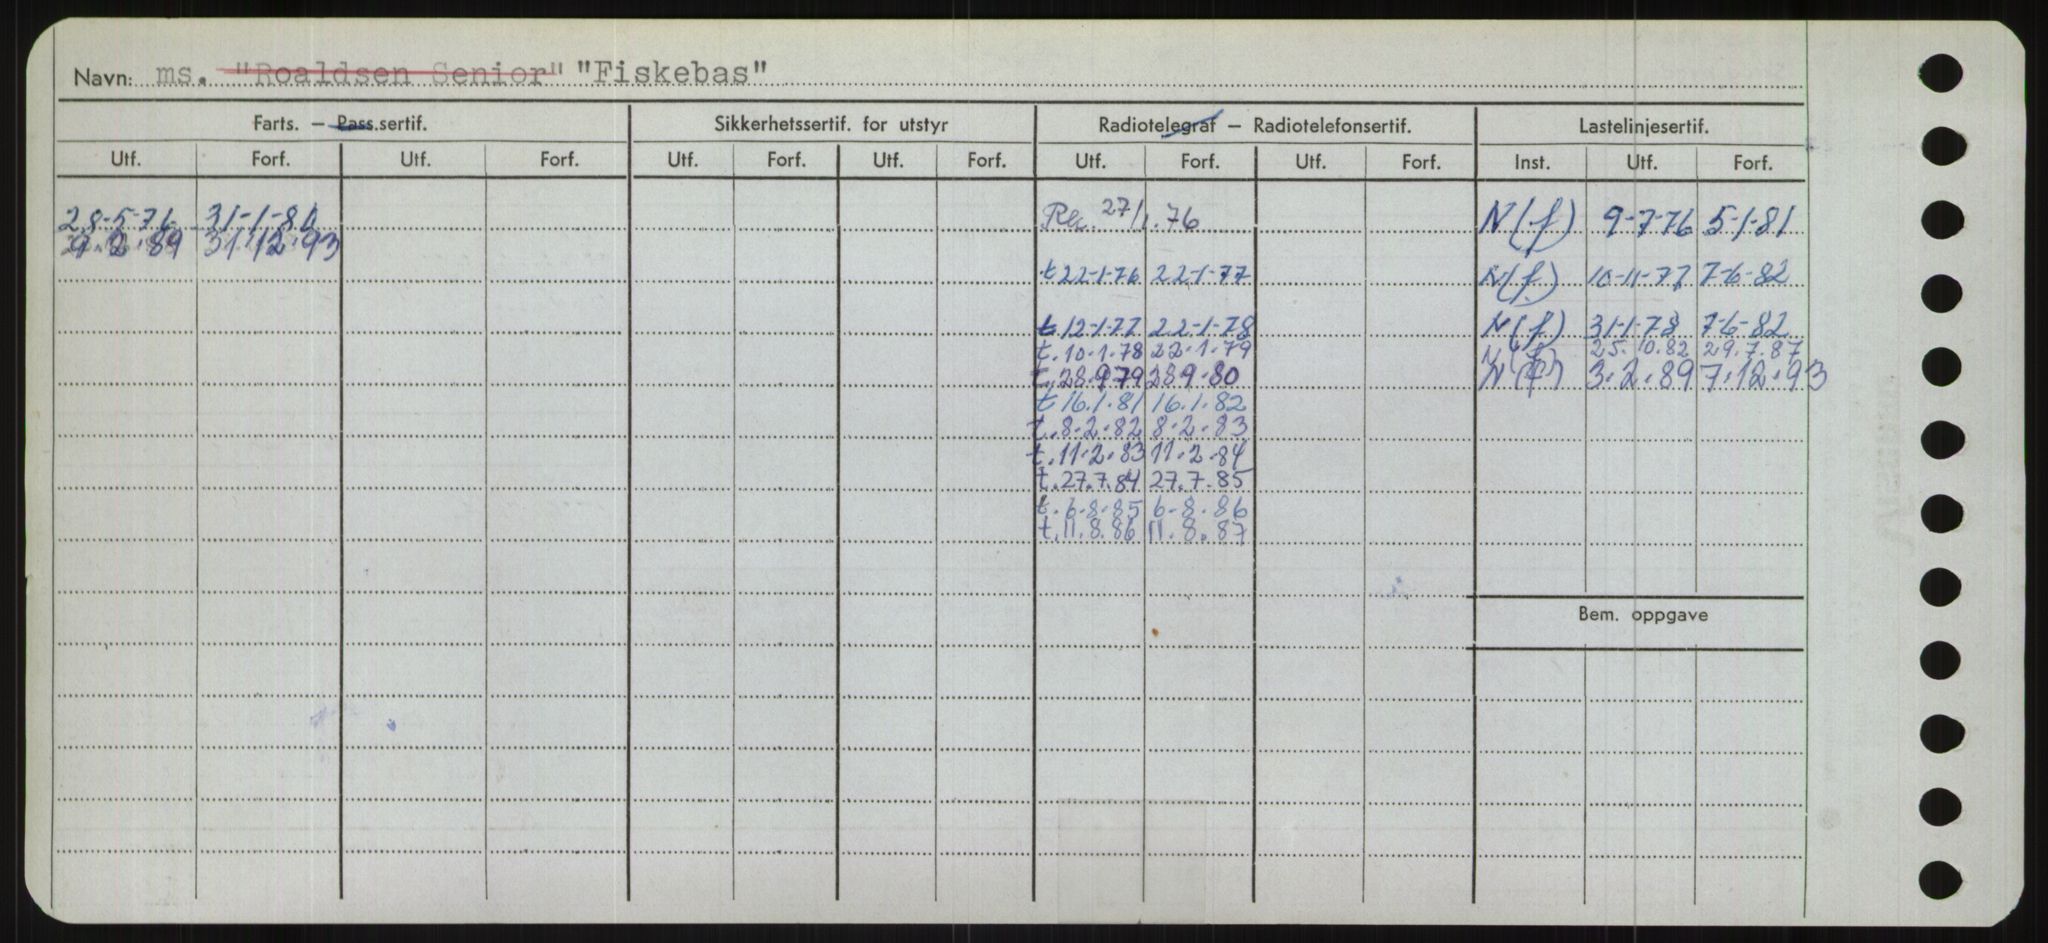 Navn: ms. "Roaldsen Senior" "Fiskebas"
Farts. — Pass.sertif. Sikkerhetssertif. for utstyr Radiotelegraf — Radiotelefonsertif. Lastelinjesertif.
Utf. Forf. Utf. Forf. Utf. Forf. Utf. Forf. Utf. Forf. Utf. Forf. Inst. Utf. Forf.
28-5-76 31-1-80 Rec. 27/1.76 N(f) 9-7-76 5-1-81
9.2.89 31.12.93
t 22-1-76 22-1-77 N(f) 10-11-77 7-6-82
t 12-1-77 22-1-78 N(f) 31-1-78 7-6-82
t. 10.1.78 22.1.79 N(f) 25.10.82 29.7.87
t. 28.9.79 28.9.80 N(f) 3.2.89 7.12.93
t 16.1.81 16.1.82
t. 8.2.82 8.2.83
t. 11.2.83 11.2.84
t. 27.7.84 27.7.85
t. 6.8.85 6.8.86
t. 11.8.86 11.8.87
Bem. oppgave